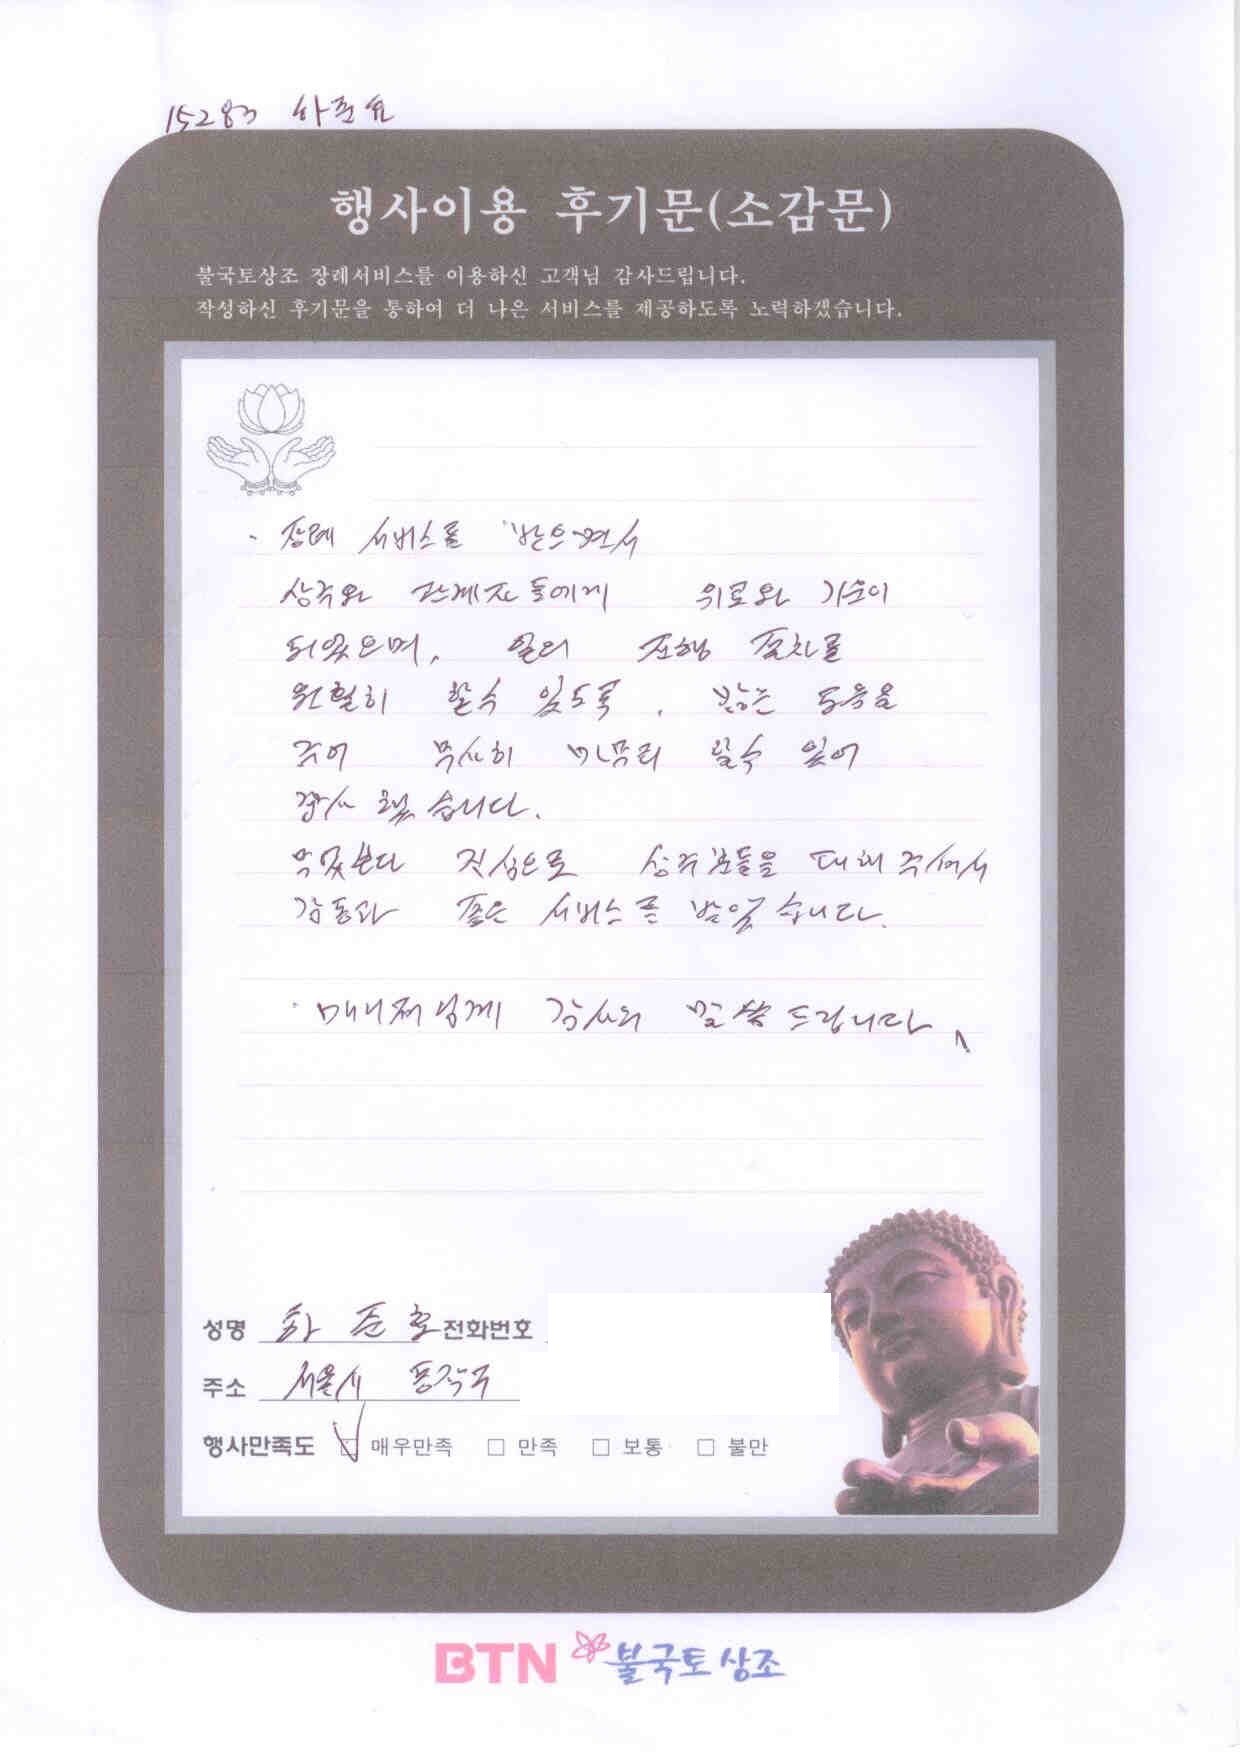 15283 하준호
행사이용 후기문(소감문)
불국토상조 장례서비스를 이용하신 고객님 감사드립니다.
작성하신 후기문을 통하여 더 나은 서비스를 제공하도록 노력하겠습니다.
· 장례 서비스를 받으면서
상주와 관계자들에게 위로와 기순이
되었으며, 일의 진행 절차를
원활히 할수 있도록, 많은 도움을
주어 무사히 마무리 할수 있어
감사 했습니다.
무엇보다 진심으로 상주분들을 대해주셔서
감동과 좋은 서비스를 받았습니다.
· 매니저님께 감사의 말씀드립니다
성명 하준호 전화번호
주소 서울시 동작구
행사만족도 □ 매우만족 □ 만족 □ 보통 □ 불만
BTN 불국토상조